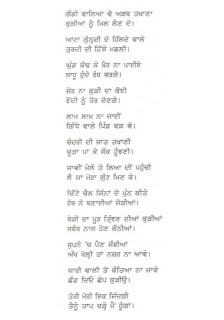 ਗੱਡੀ ਵਾਲਿਆ ਵੇ ਅੜਬ ਤਖਾਣਾ
ਕੁੜੀਆਂ ਨੂੰ ਮਿਲ ਲੈਣ ਦੇ।
ਆਟਾ ਗੁੰਨ੍ਹਦੀ ਦੇ ਹਿੱਲਦੇ ਵਾਲੇ
ਤੁਰਦੀ ਦੀ ਹਿੱਲੇ ਮਛਲੀ।
ਘੁੰਡ ਕੱਢ ਕੇ ਖ਼ੈਰ ਨਾ ਪਾਈਏ
ਸਾਧੂ ਹੁੰਦੇ ਰੱਬ ਵਰਗੇ।
ਜ਼ੋਰ ਨਾ ਕੁੜੀ ਦਾ ਕੋਈ
ਰੋਂਦੀ ਨੂੰ ਤੋਰ ਦੇਣਗੇ।
ਲਾਮ ਲਾਮ ਨਾ ਜਾਈਂ
ਗਿੱਧੇ ਵਾਲੇ ਪਿੰਡ ਵੜ ਵੇ।
ਚੰਦਰੀ ਦੀ ਜਾਤ ਤਖਾਣੀ
ਚੂੜਾ ਪਾ ਕੇ ਸੱਕ ਹੂੰਝਣੀ।
ਜਾਵੀਂ ਮੇਲੇ ਤੇ ਲਿਆ ਦੀਂ ਪਹੁੰਚੀ
ਲੈ ਜਾ ਮੇਰਾ ਗੁੱਟ ਮਿਣ ਕੇ।
ਚਿੱਟੇ ਚੌਲ ਜਿੰਨਾਂ ਦੇ ਪੁੰਨ ਕੀਤੇ
ਰੱਬ ਨੇ ਬਣਾਈਆਂ ਜੋੜੀਆਂ।
ਬੇੜੀ ਦਾ ਪੂਰ ਤ੍ਰਿੰਞਣ ਦੀਆਂ ਕੁੜੀਆਂ
ਸਬੱਬ ਨਾਲ ਹੋਣ ਕੱਠੀਆਂ।
ਸੁਪਨੇ 'ਚ ਪੈਣ ਜੱਫੀਆਂ
ਅੱਖ ਖੁੱਲ੍ਹੀ ਤਾਂ ਨਜ਼ਰ ਨਾ ਆਵੇ।
ਧਾਰੀ ਵਾਲੀ ਤੋਂ ਕੱਤਿਆ ਨਾ ਜਾਵੇ
ਛੱਡ ਦਿਓ ਛੋਪ ਕੁੜੀਓ।
ਤੇਰੀ ਮੇਰੀ ਇਕ ਜਿੰਦੜੀ
ਤੈਨੂੰ ਤਾਪ ਚੜ੍ਹੇ ਮੈਂ ਹੂੰਗਾਂ।